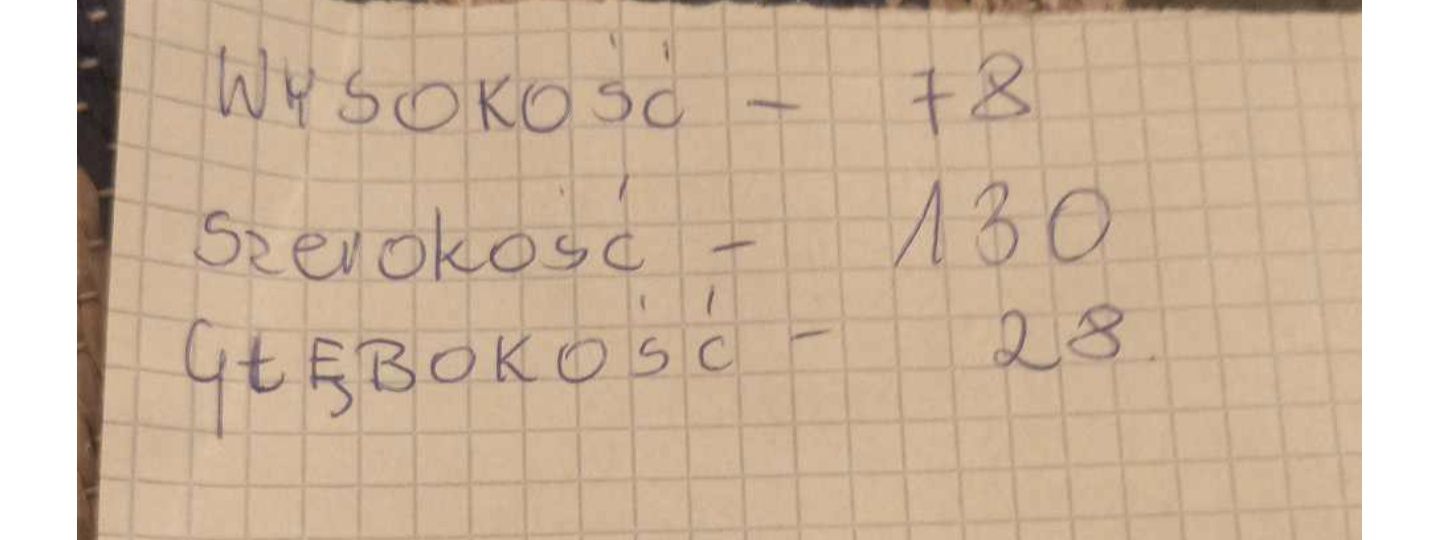 WYSOKOŚĆ - 78
Szerokość - 130
GŁĘBOKOŚĆ - 28.